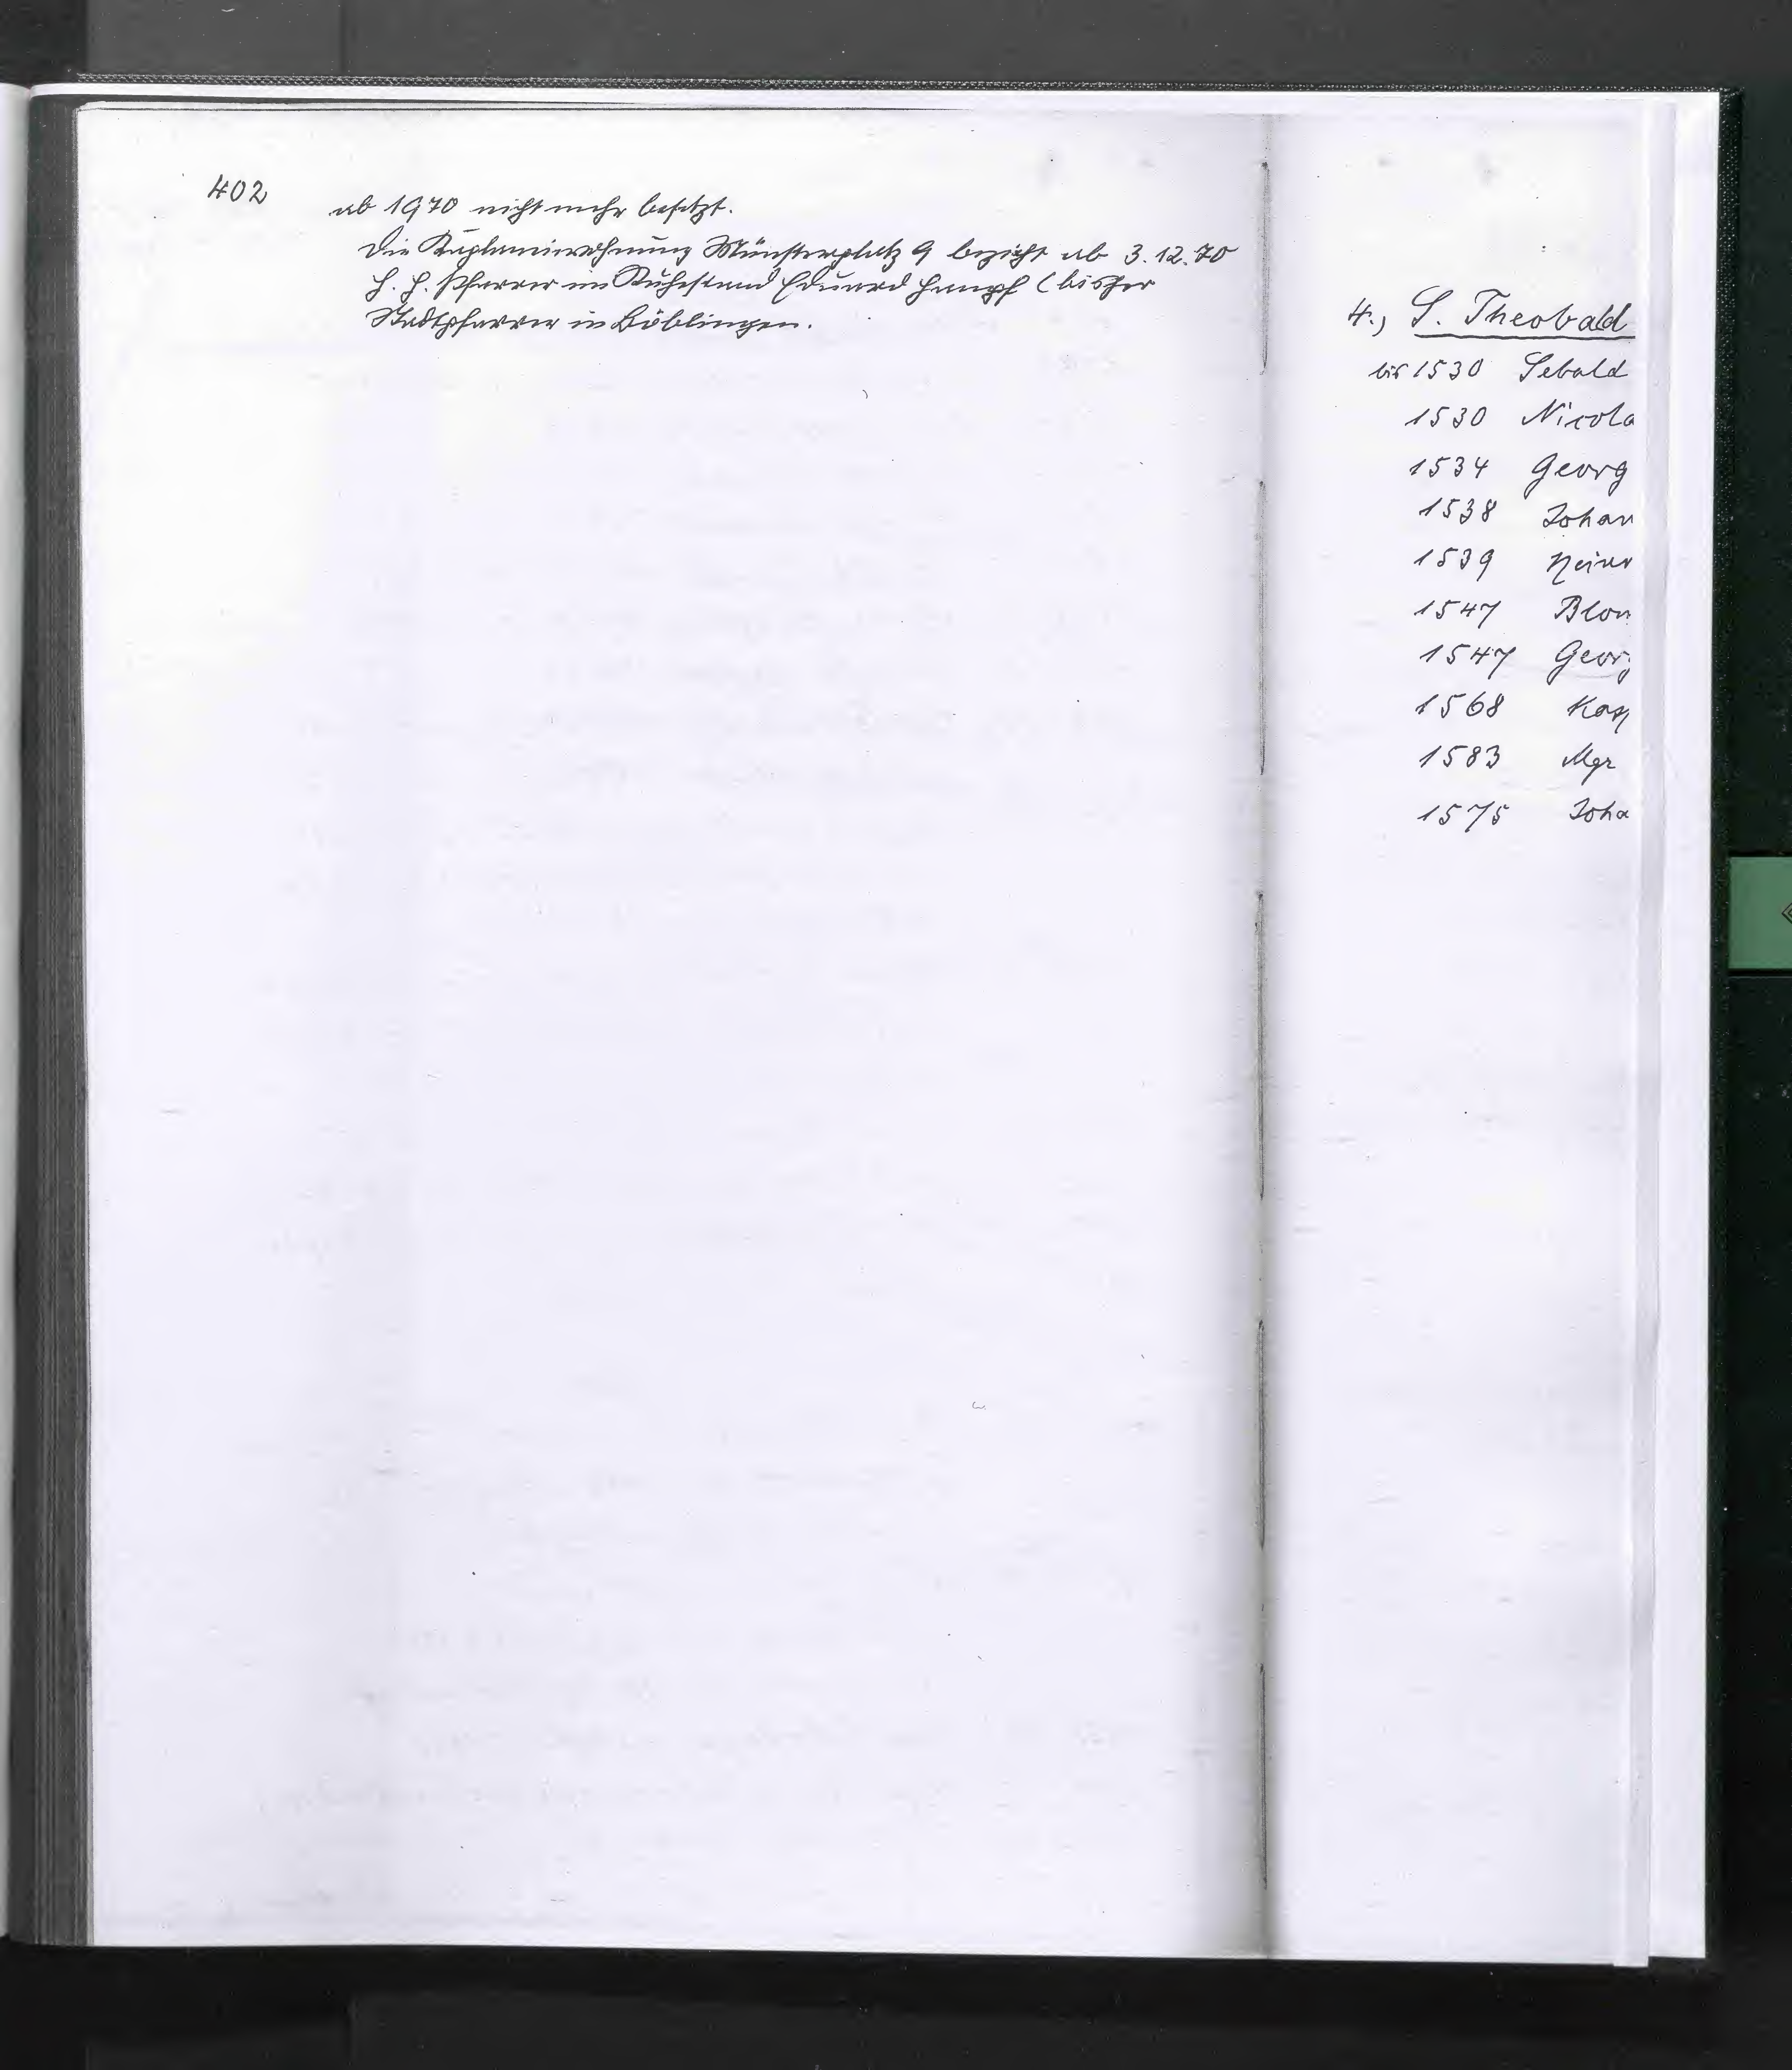 402
ab 1970 nicht mehr besetzt.
Die Kaplaneiwohnung Münsterplatz 9 bezieht ab 3.12.70
H. H. Pfarrer im Ruhestand Eduard (bisher
Stadtpfarrer in Böblingen.
4.) S. Theobald
bis 1530 Sebald
1530 Nicola
1534 Georg
1538 Johan
1539 Heinr
1547 Blon
1547 Georg
1568 Kasp
1583 Mgr
1575 Joha